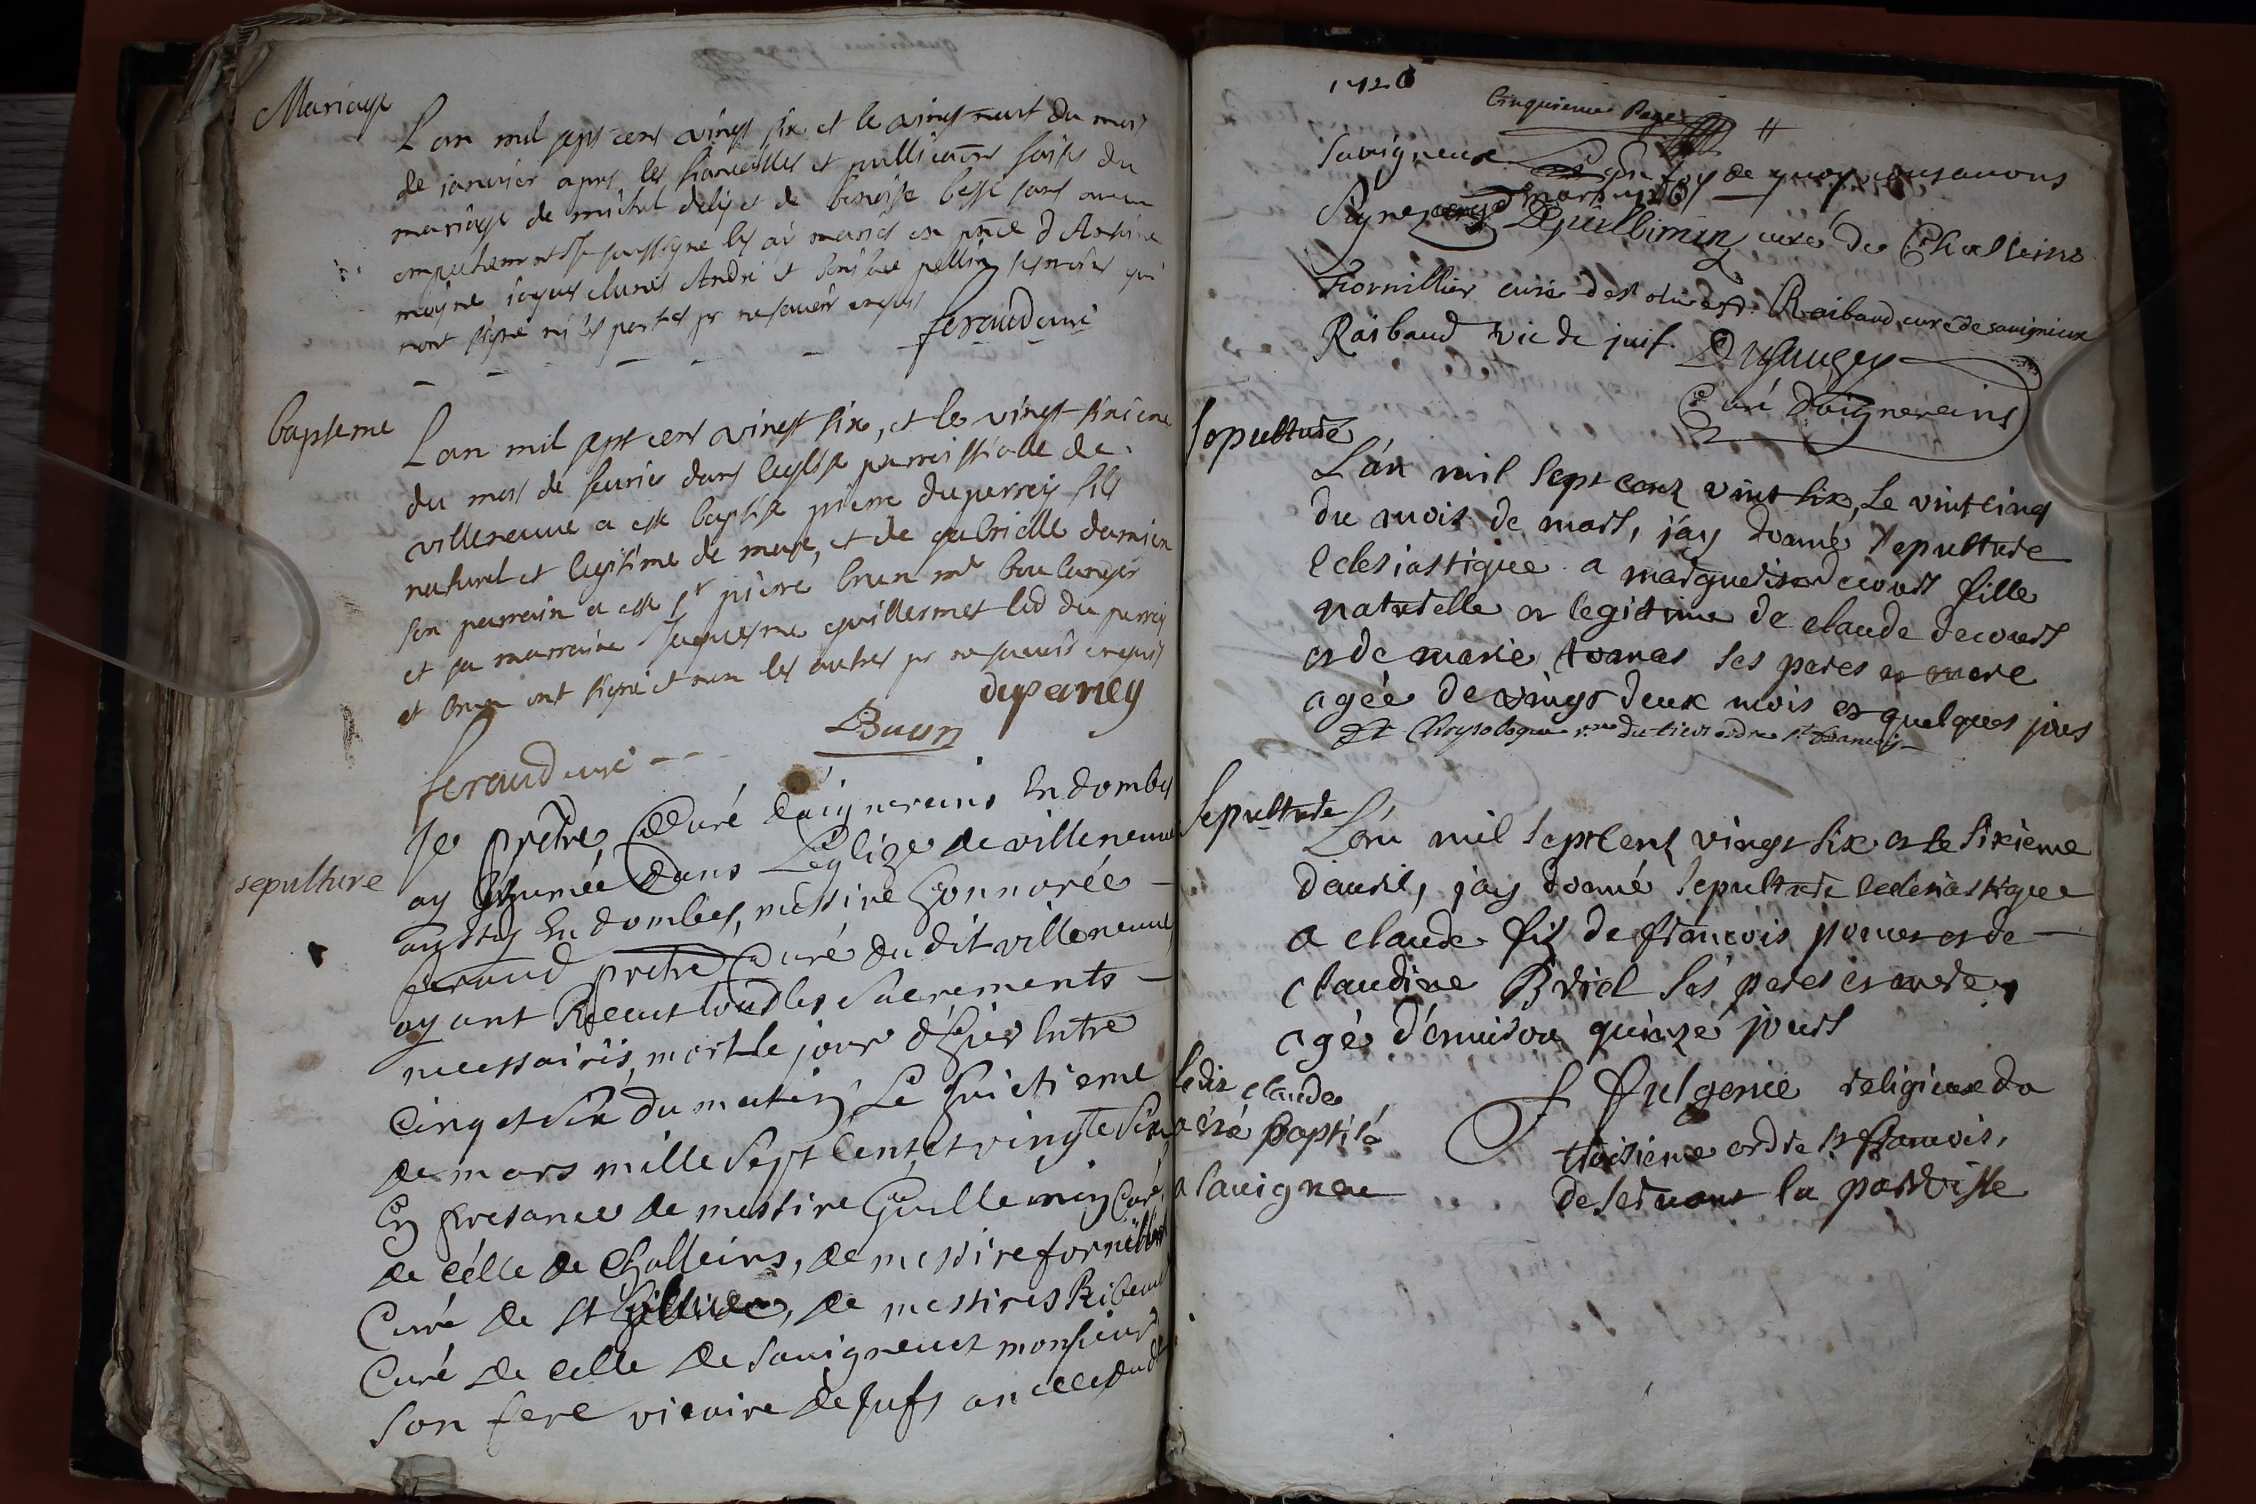 Mariage
Lan mil sept cens vingt six et le vingt neuf du mois
de janvier apres les fiancailles et publications faites du
mariage de michel delis et de benoiste besse sans aucun
empechement soussigne les ay mariés en pnce d Antoine
moyne jaques André et pellin qui
nont signé ni les parties pr ne sçavoir enquis
feraud curé
baptsme
Lan mil sept cens vingt six, et le vingt sixieme
du mois de feurier dans leglise parroissialle de
villeneuve a esté baptisé pierre duperrey fils
naturel et legitime de marc, et de gabrielle damien
son parrain a esté sr pierre brun md boulanger
et sa marraine jaquesme guillermet led duperrey
et brun ont signé et non les autres pr ne sçavoir enquis
duperrey
Brun
feraud curé
sepulture
Je prêtre Curé daignereins En dombes
ay Inhumée Dans Leglize de villeneuve
aussy En dombes, messire honnorée
feraud prêtre Curé du dit villeneuve
ayant Receut tous les Sacrements
necessairis, mort le jour d'hier Entre
Cinq et Six du matin Le huictieme
de mars mille Sept Cent et vingte Six
En presance de messire Guillemin Curé
de célle de Challeins, de messire fornillier
Curé de St , de messires Ribaud
Curé de celle de Savigneux monsieur
son frere vicaire de Jufs an
1726
Cinquieme Page
Savigneux En foy de quoy nous avons
Signé ce 9 mars 1726
DGuillimin curé de Challeins
fornillier curé de st oliue Raibaud curé de savigneux
Raibaud vic de juif Dusauzey
Curé d'aignereins
Sepulture
L'an mil sept cent vint six, Le vint cinq
du mois de mars, j'ay donné sepulture
eclesiastique a marguerite decourt fille
naturelle et legitime de claude decourt
et de marie tomas ses peres et mere
agée de vingt deux mois et quelques jours
fr Chrysologue rx du tiers ordre st francois
Sepulture
L'an mil sept cent vingt six et le sixieme
d'auril, j'ay donné sepulture eclesiastique
a claude fils de francois et de
claudine Briel ses peres et mere
agé d'enuiron quinze jours
ledit claude
a été baptisé
a Savigneu
f fulgence religieux du
troisieme ordre st francois,
deservant la parroisse